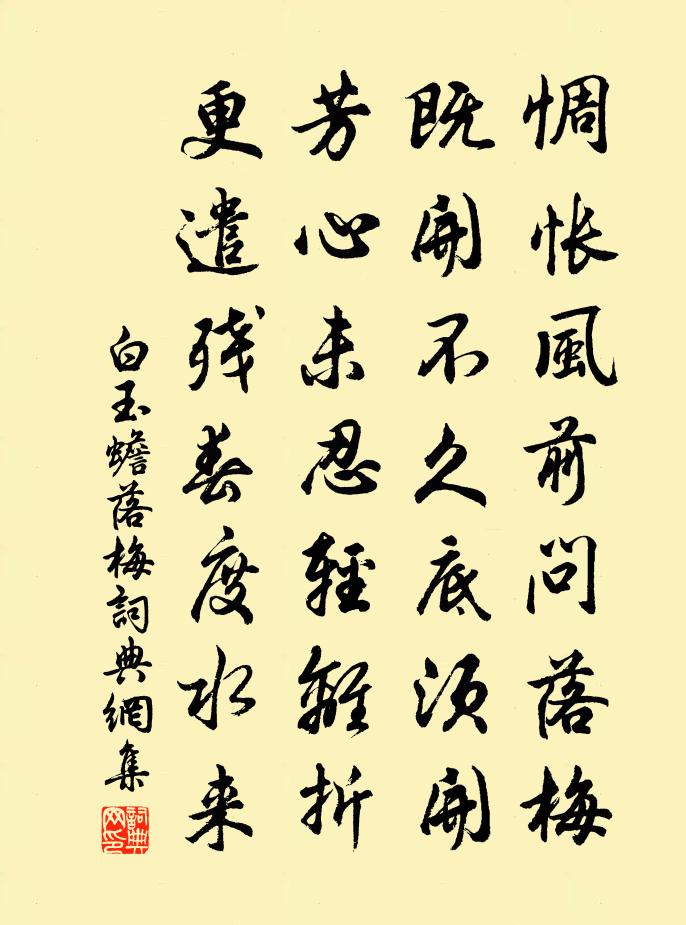 惆悵風前問落梅
既開不久底須開
芳心未忍輕離折
更遣残春度水来
白玉蟾落梅詞典網集
詞典網印